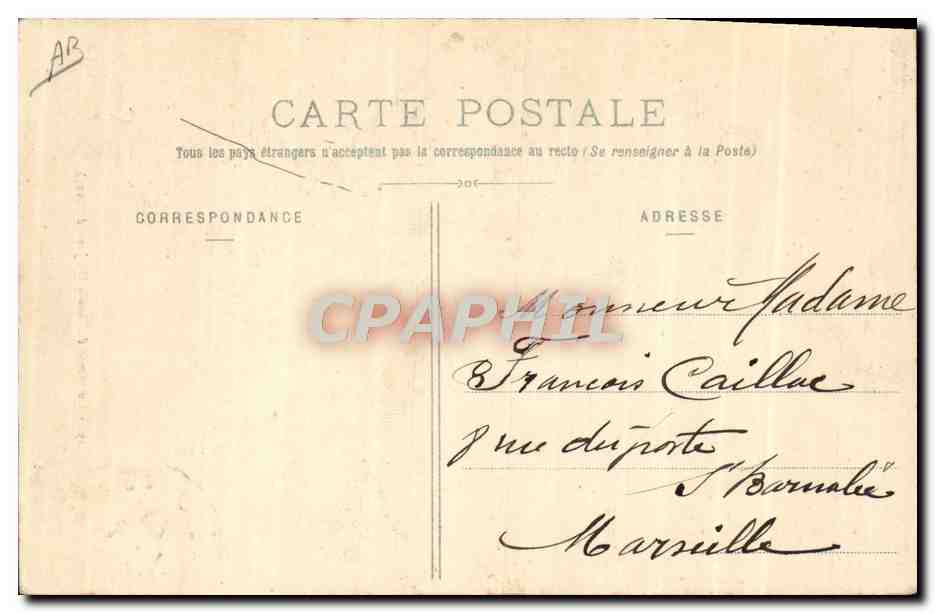 AB
CARTE POSTALE
Tous les pays étrangers n'acceptent pas la correspondance au recto (Se renseigner à la Poste)
CORRESPONDANCE
ADRESSE
CPAPHIL
Monsieur Madame
François Caillac
8 rue du poste
St Barnabé
Marseille